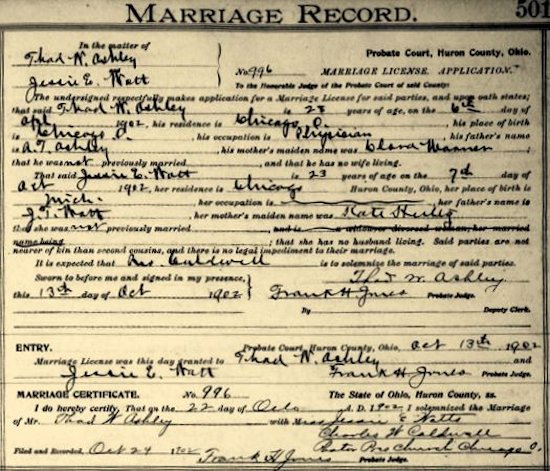 MARRIAGE RECORD.
501
In the matter of
Thad W. Ashley
Jessie E. Watt
Probate Court, Huron County, Ohio.
No. 996 MARRIAGE LICENSE. APPLICATION.
To the Honorable Judge of the Probate Court of said County:
The undersigned respectfully makes application for a Marriage License for said parties, and upon oath states;
that said Thad W. Ashley is 28 years of age, on the 6th day of
Apl 1902, his residence is Chicago O. his place of birth
is Chicago O. his occupation is Physician, his father's name
is A. T. Ashley his mother's maiden name was Clara
that he was not previously married, and that he has no wife living.
That said Jessie E. Watt is 23 years of age on the 7th day of
Oct 1902, her residence is Chicago Huron County, Ohio, her place of birth is
Mich. her occupation is her father's name is
J. T. Watt her mother's maiden name was Kate
that she was not previously married and is a widow or divorced woman, her married
name being; that she has no husband living. Said parties are not
nearer of kin than second cousins, and there is no legal impediment to their marriage.
It is expected that Rev Caldwell is to solemnize the marriage of said parties.
Sworn to before me and signed in my presence, Thad W. Ashley.
this 13th day of Oct 1902 Frank H Jones Probate Judge.
By Deputy Clerk.
ENTRY. Probate Court, Huron County, Ohio, Oct 13th, 1902
Marriage License was this day granted to Thad W. Ashley and
Jessie E. Watt Frank H. Jones Probate Judge.
MARRIAGE CERTIFICATE. No. 996 The State of Ohio, Huron County, ss.
I do hereby certify, That on the 22 day of Oct A. D. 1902 I solemnized the Marriage
of Mr. Thad W Ashley with Miss Jessie E. Watts
Charles W Caldwell
Filed and Recorded, Oct 24 1902 Pastor Pres Church Chicago O.
Frank H Jones Probate Judge.